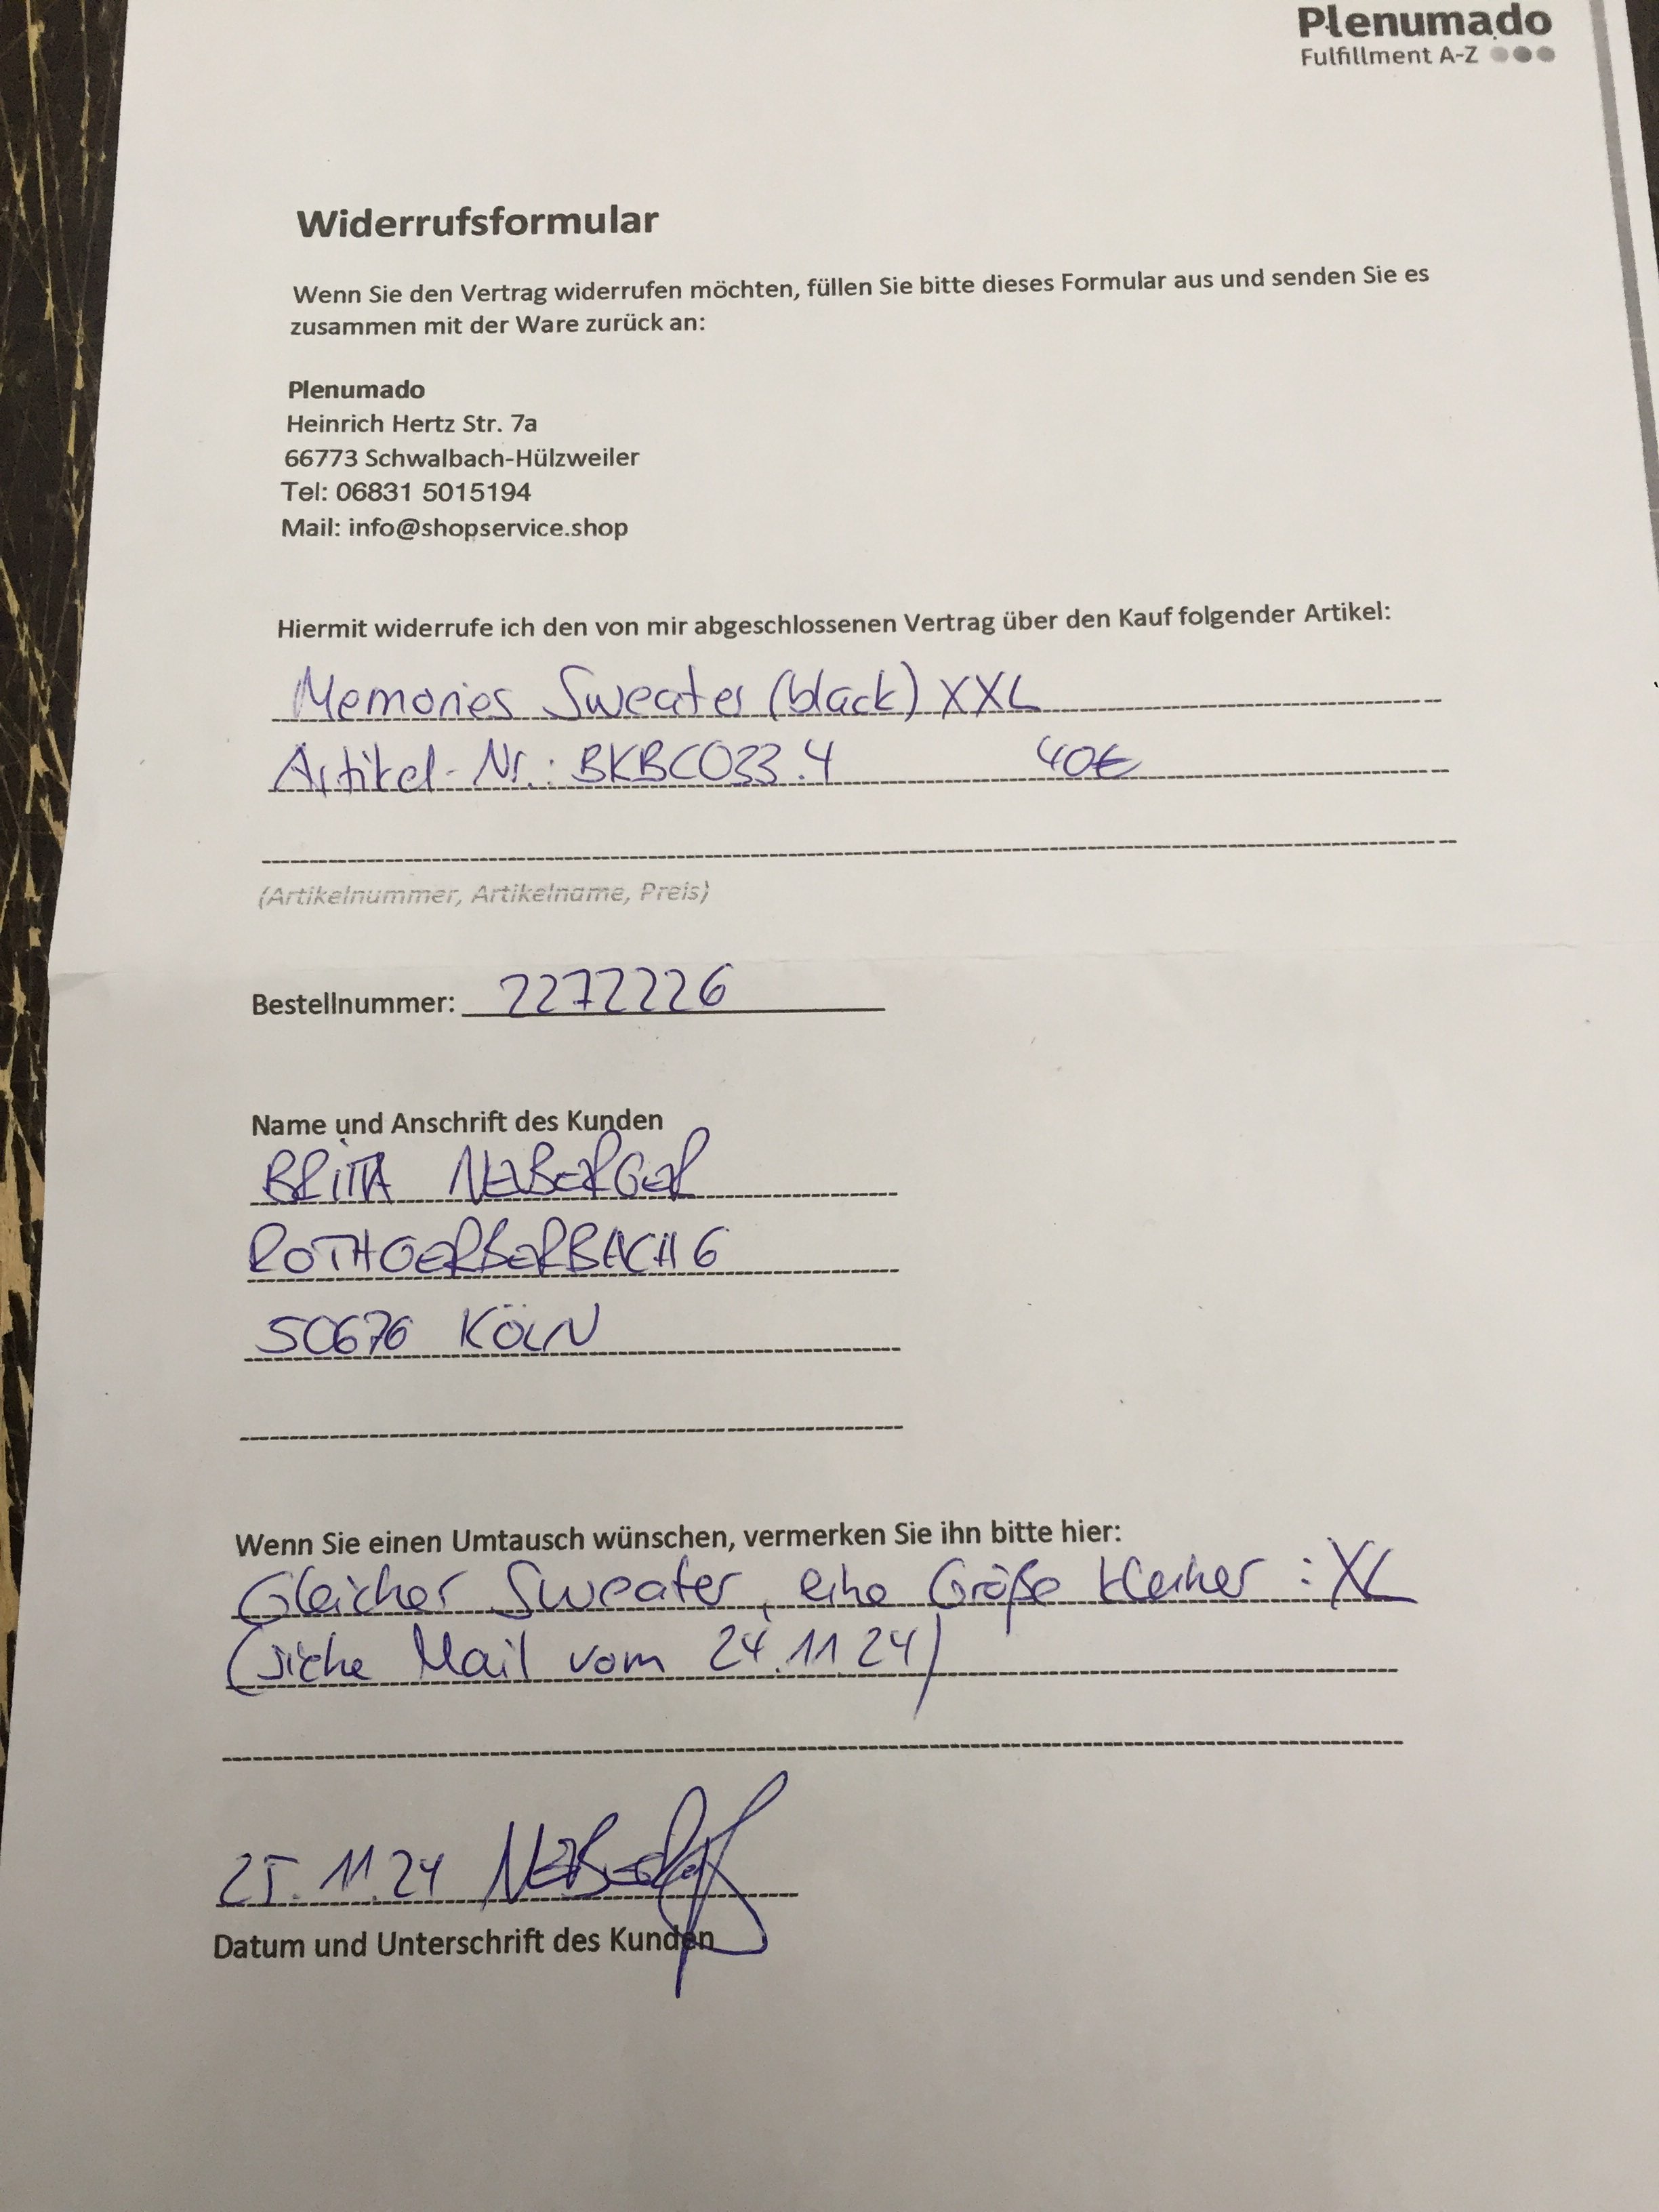 Plenumado
Fulfillment A-Z
Widerrufsformular
Wenn Sie den Vertrag widerrufen möchten, füllen Sie bitte dieses Formular aus und senden Sie es
zusammen mit der Ware zurück an:
Plenumado
Heinrich Hertz Str. 7a
66773 Schwalbach-Hülzweiler
Tel: 06831 5015194
Mail: info@shopservice.shop
Hiermit widerrufe ich den von mir abgeschlossenen Vertrag über den Kauf folgender Artikel:
Memories Sweater (black) XXL
Artikel-Nr.: BKBCO33.4 40€
(Artikelnummer, Artikelname, Preis)
Bestellnummer: 2272226
Name und Anschrift des Kunden
BRITTA NEUBERGER
ROTHGERBERBACH 6
50676 KÖLN
Wenn Sie einen Umtausch wünschen, vermerken Sie ihn bitte hier:
Gleicher Sweater, eine Größe kleiner : XL
(siehe Mail vom 24.11.24)
25.11.24
Datum und Unterschrift des Kunden